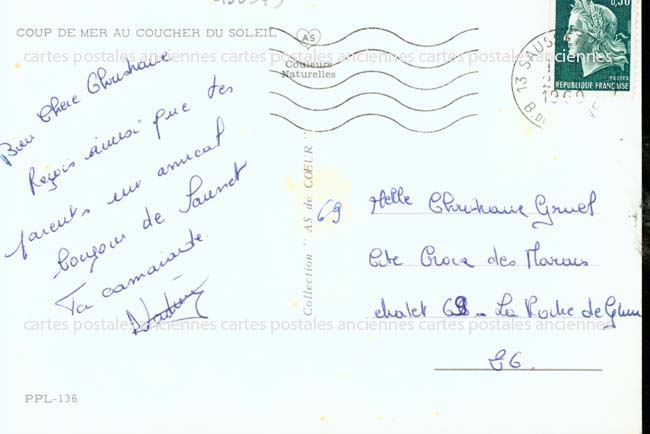 COUP DE MER AU COUCHER DU SOLEIL
AS
Couleurs
Naturelles
0,30
POSTES
RÉPUBLIQUE FRANÇAISE
13 SAUS
1969
B. DU
cartes postales anciennes cartes postales anciennes cartes postales anciennes
Bien Chère Christiane
Reçois ainsi que tes
parents un amical
bonjour de Sausset
Ta camarade
Collection " AS de CŒUR "
69
Melle Christiane Gruel
Cité Croix des Marais
chalet 69 - La Roche de Glun
26.
cartes postales anciennes cartes postales anciennes cartes postales anciennes
PPL-136